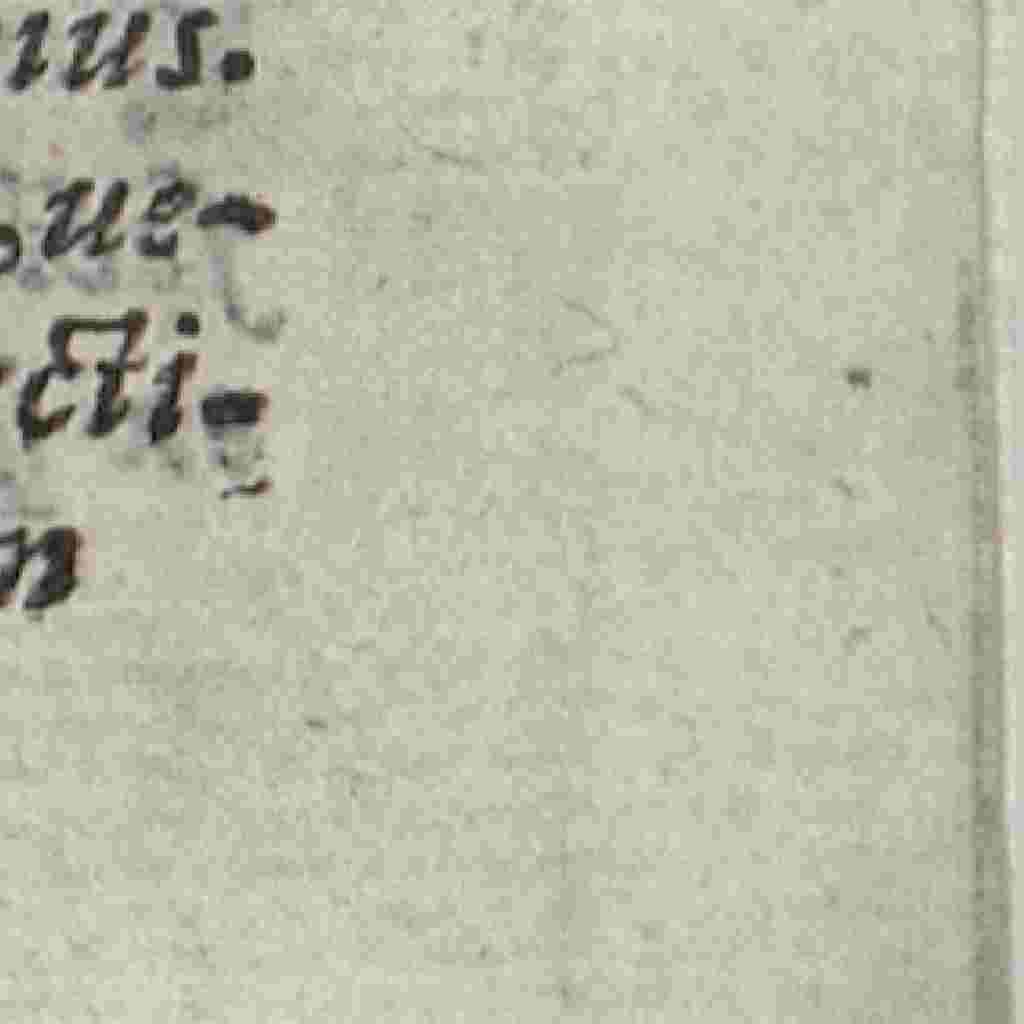 us.
ue-
cti-
n